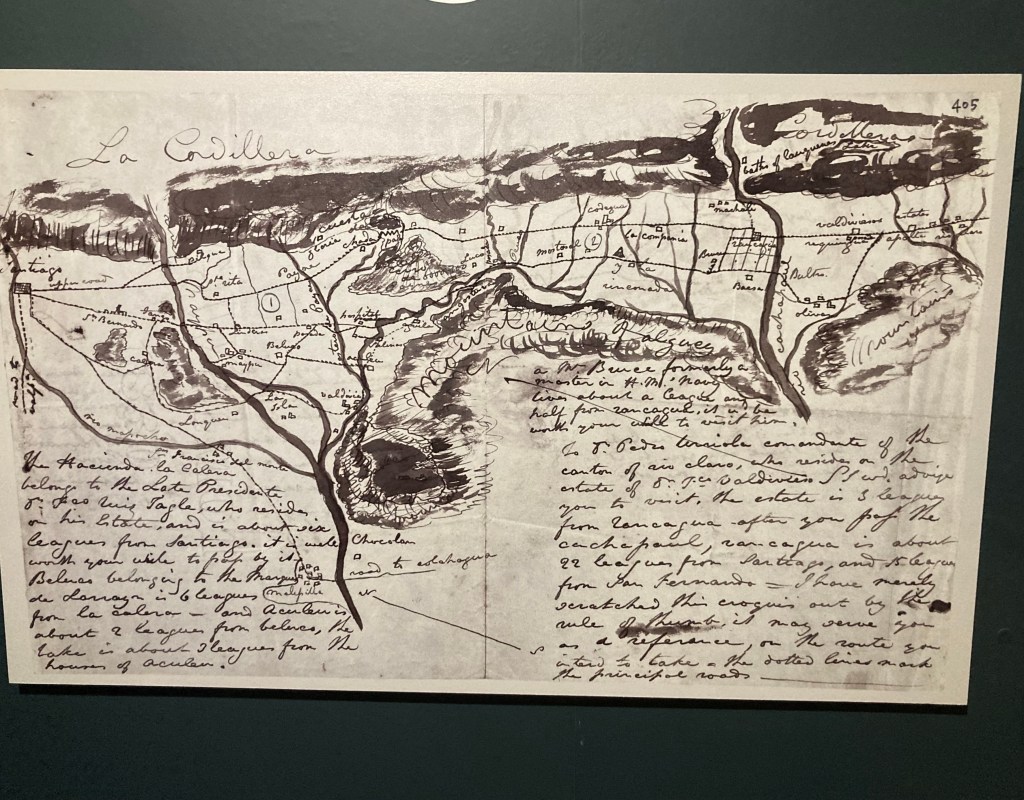 405
La Cordillera
Cordillera
bath of cauquenes
codegua
machali
la compania
valdiviesos estate
requinoa
mostasal 2
rancagua
y de la
rinconada
Bruce
Baesa
olivar
mountains
cachapaul
santiago
sta rita
1
hospital
Sn Bernardo
calera
maypu
Longuen
valdivia
rio mapocho
Sn Francisco del monte
mountains of alguey
a Mr Bruce formerly a
master in H.M. Navy
lives about a league and
half from rancagua, it wd be
worth your while to visit him.
To Dn Pedro Urriola comandante of the
canton of rio claro, who resides on the
estate of Dn Fco Valdivieso I wd advise
you to visit, the estate is 3 leagues
from rancagua after you pass the
cachapaul, rancagua is about
22 leagues from Santiago, and 15 leagues
from San Fernando — I have merely
scratched this croquis out by the
rule of thumb, it may serve you
as a reference, on the route you
intend to take – the dotted lines mark
the principal roads
The Hacienda la Calera
belongs to the Late Presidente
Dn Fco Ruiz Tagle, who resides
on his Estate, and is about six
leagues from Santiago. it is well
worth your while to pass by it
Beluco belonging to the Marques
de Larrayn is 6 leagues
from la calera — and Aculeu is
about 2 leagues from beluco, the
Lake is about 3 leagues from the
houses of Aculeu.
Chocolan
road to colchagua
melipilla
N
S